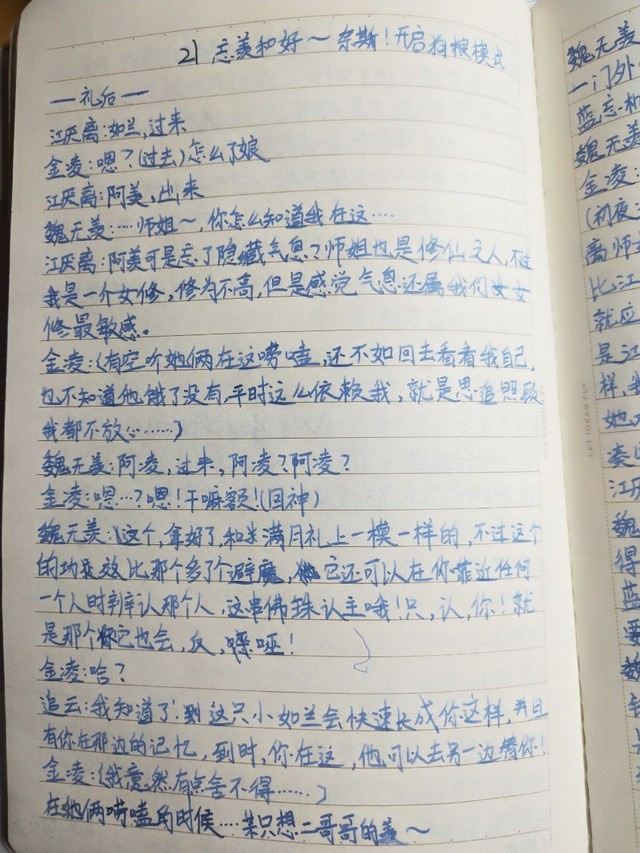 21 忘羡和好～ 奈斯！开启狗粮模式
一礼后一
江厌离：如兰，过来
金凌：嗯？（过去）怎么了娘
江厌离：阿羡，出来
魏无羡：…师姐～，你怎么知道我在这….
江厌离：阿羡可是忘了隐藏气息？师姐也是修仙之人，不过
我是一个女修，修为不高，但是感觉气息还属我们女女
修最敏感。
金凌：（有空听她俩在这唠嗑，还不如回去看看我自己，
也不知道他饿了没有，平时这么依赖我，就是思追照顾
我都不放……）
魏无羡：阿凌，过来，阿凌？阿凌？
金凌：嗯…？嗯！干嘛额！（回神）
魏无羡：这个，拿好了，和当满月礼上一模一样的，不过这个
的功效比那个多了个避魔，它还可以在你靠近任何
一个人时辨认那个人，这串佛珠认主哦！只，认，你！就
是那个你它也会，反，噬哑！
金凌：啥？
追云：我知道了！到这只小如兰会快速长成你这样，并且
有你在那边的记忆，到时，你在这，他可以去另一边替你！
金凌：（我竟然有点舍不得……）
在她俩唠嗑的时候….某只想二哥哥的羡～
魏无羡
一门外
蓝忘机
魏无羡
金凌：
（初夜
离师
比江
就应
是江
样，我
她
江厌
魏
得
蓝
要
魏
LET IDEAS FLY